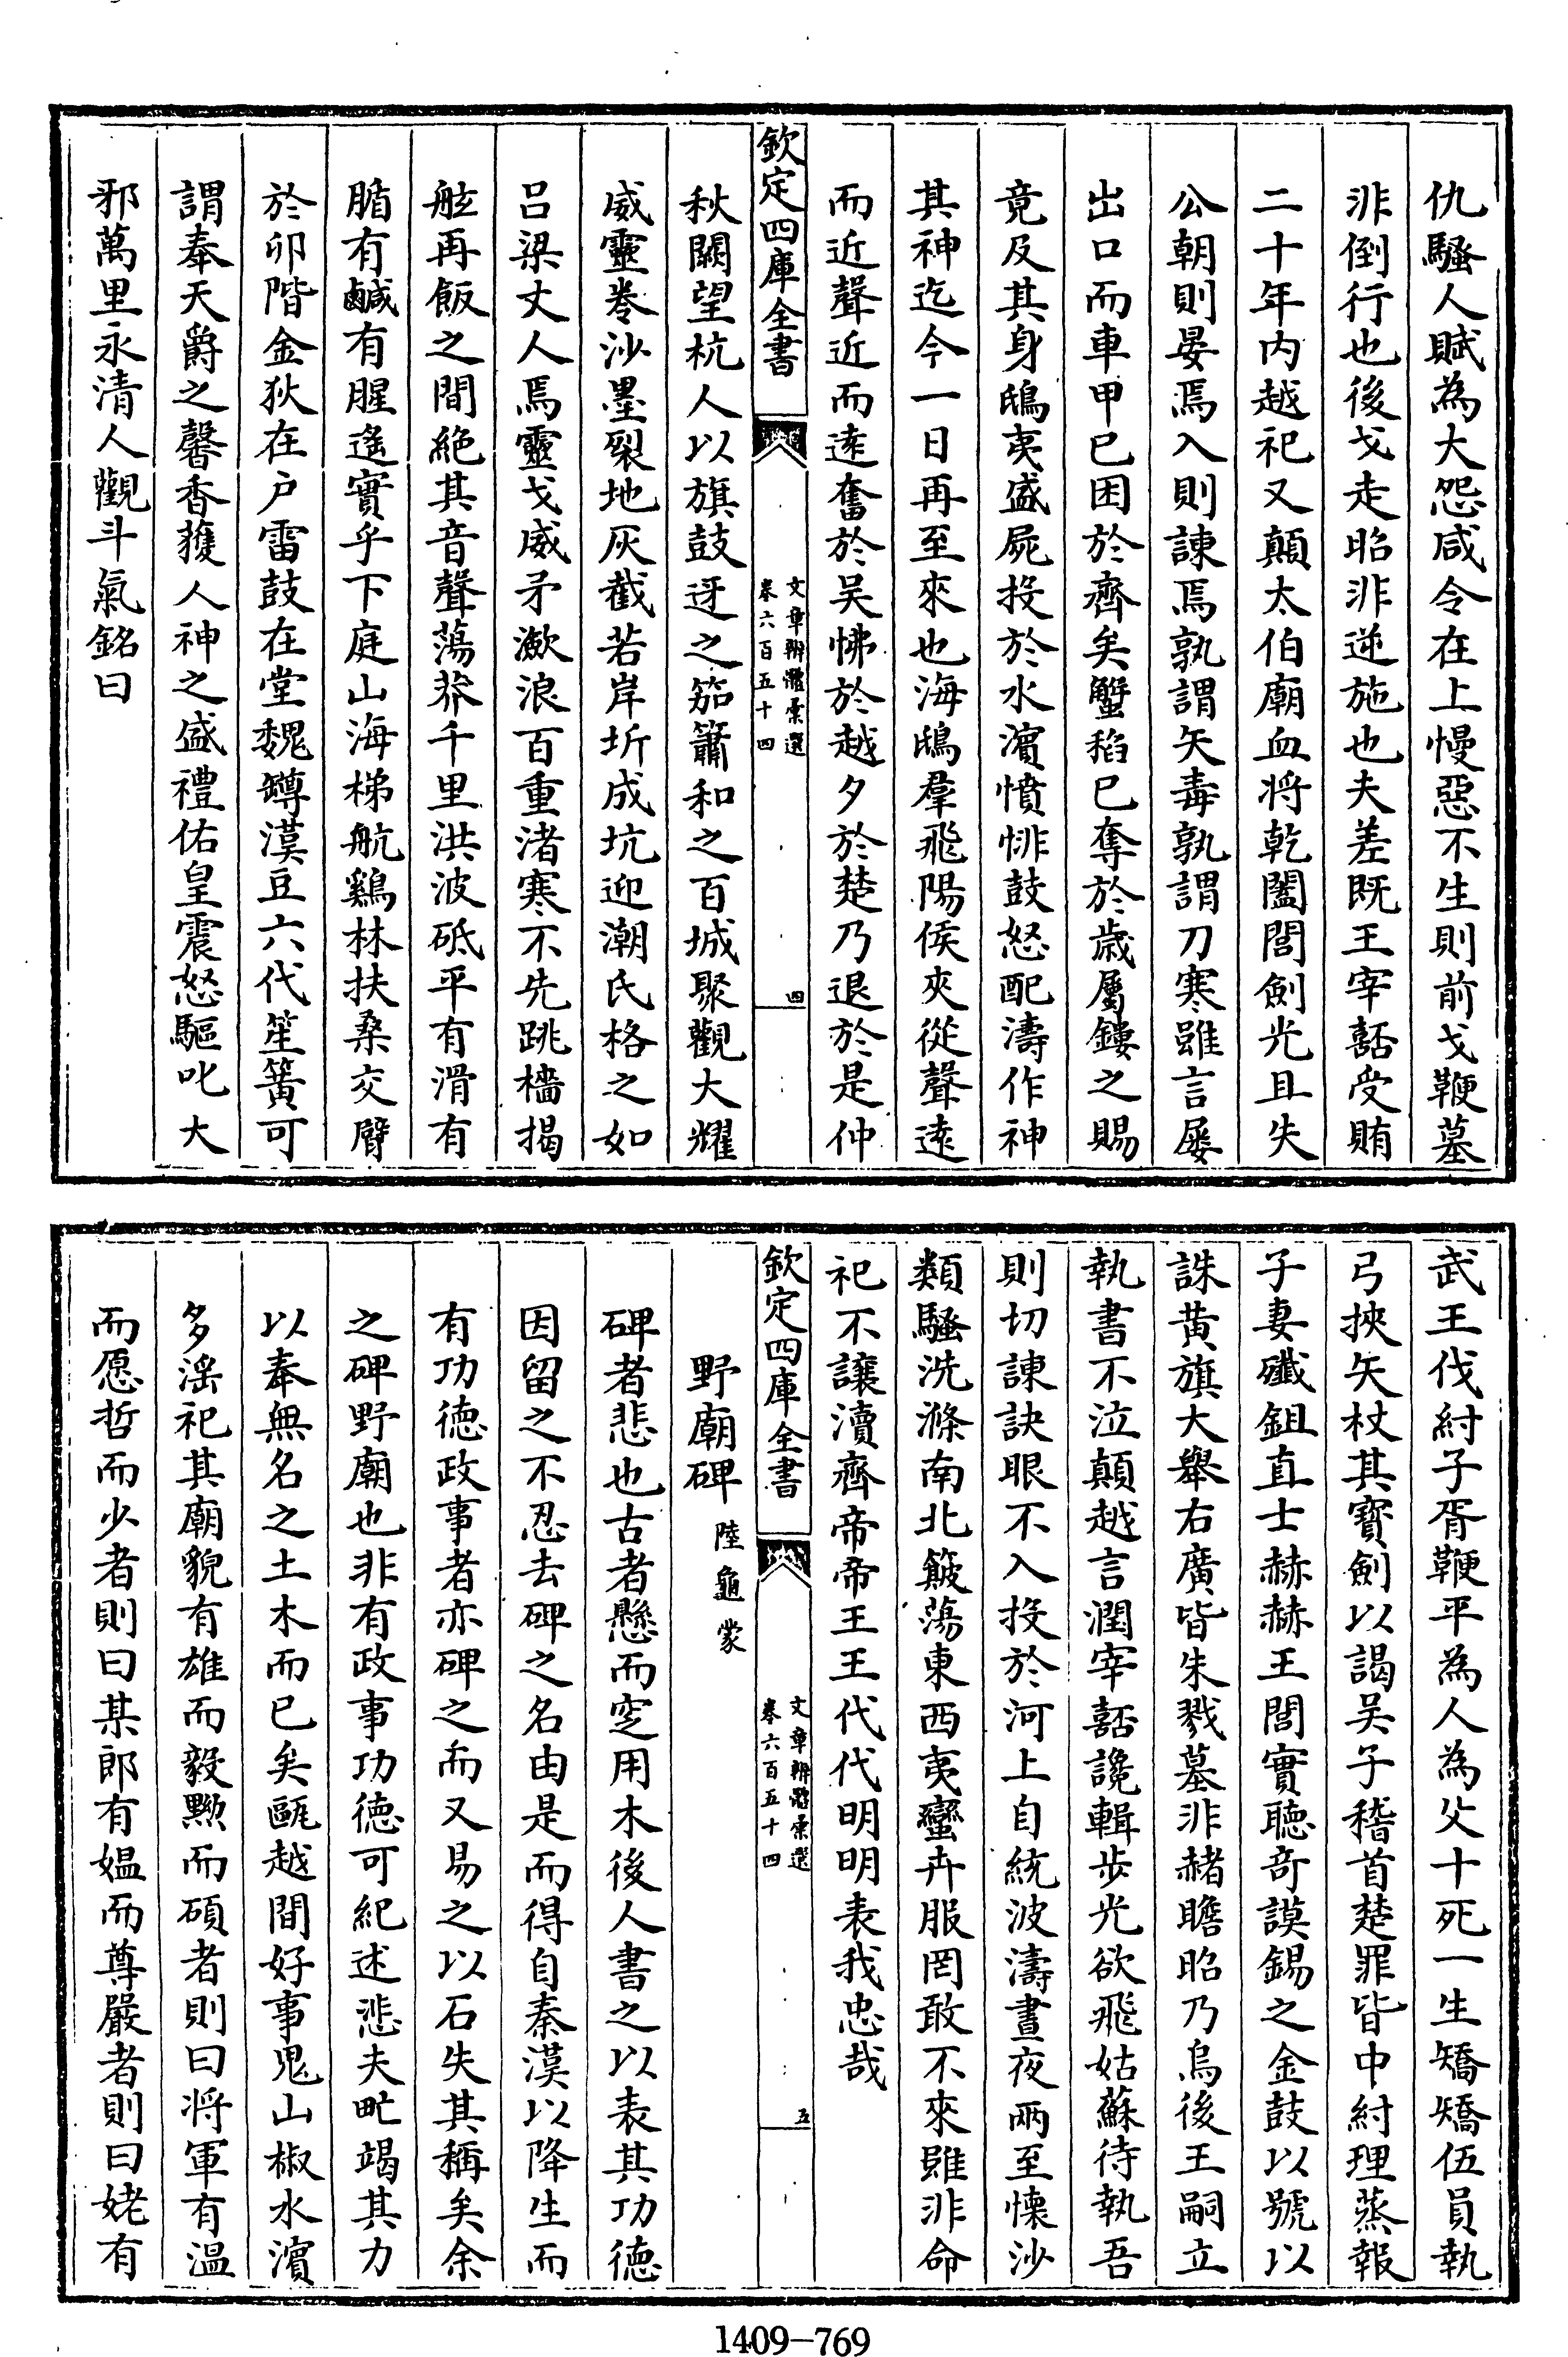 仇騷人賦為大怨咸令在上慢惡不生則前戈鞭墓
非倒行也後戈走昭非逆施也夫差既王宰嚭受賄
二十年内越祀又顛太伯廟血將乾闔閭劍光且失
公朝則晏焉入則諫焉孰謂矢毒孰謂刀寒雖言屡
出口而車甲已困於齊矣蟹稻已奪於歳屬鏤之賜
竟及其身鴟夷盛屍投於水濱憤悱鼓怒配濤作神
其神迄今一日再至來也海鴟羣飛陽侯夾從聲逺
而近聲近而逺奮於吴怫於越夕於楚乃退於是仲
欽定四庫全書
文章辨體彚選
卷六百五十四
四
秋闕望杭人以旗鼓迓之笳簫和之百城聚觀大耀
威靈卷沙墨裂地灰截若岸圻成坑迎潮氏格之如
吕梁丈人焉靈戈威矛潋浪百重渚寒不先跳檣揭
舷再飯之間絶其音聲蕩莽千里洪波砥平有滑有
腯有鹹有腥遙實乎下庭山海梯航鷄林扶桑交臂
於卯階金狄在户雷鼓在堂魏罇漢豆六代笙簧可
謂奉天爵之馨香獲人神之盛禮佑皇震怒驅叱大
邪萬里永清人觀斗氣銘曰
武王伐紂子胥鞭平為人為父十死一生矯矯伍員執
弓挾矢杖其寶劍以謁吴子稽首楚罪皆中紂理蒸報
子妻殲鉏直士赫赫王閭實聽竒謨錫之金鼓以號以
誅黄旗大舉右廣皆朱戮墓非赭瞻昭乃烏後王嗣立
執書不泣顛越言潤宰嚭讒輯步光欲飛姑蘇待執吾
則切諫訣眼不入投於河上自統波濤晝夜兩至懐沙
類騷洗滌南北簸蕩東西夷蠻卉服罔敢不來雖非命
祀不讓瀆齊帝帝王王代代明明表我忠哉
欽定四庫全書
文章辨體彚選
卷六百五十四
五
野廟碑 陸龜蒙
碑者悲也古者懸而窆用木後人書之以表其功徳
因留之不忍去碑之名由是而得自秦漢以降生而
有功徳政事者亦碑之而又易之以石失其稱矣余
之碑野廟也非有政事功徳可紀述悲夫甿竭其力
以奉無名之土木而已矣甌越間好事鬼山椒水濱
多淫祀其廟貌有雄而毅黝而碩者則曰將軍有温
而愿晢而少者則曰某郎有媪而尊嚴者則曰姥有
1409—769